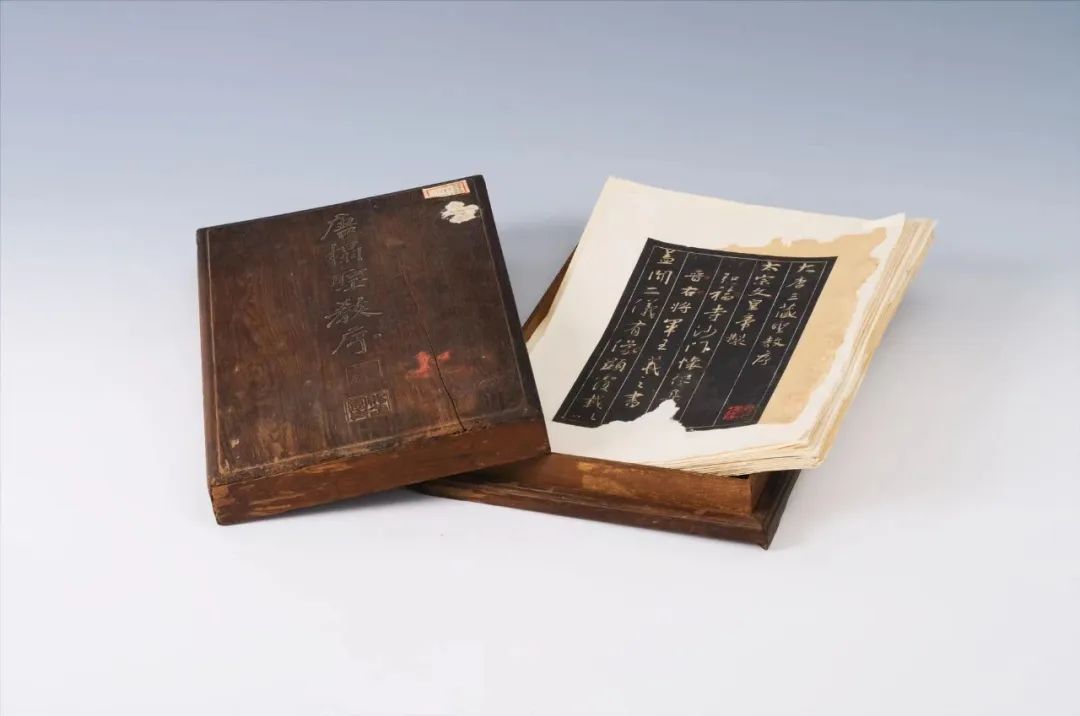 唐搨聖教序
大唐三藏聖教序
太宗文皇帝製
弘福寺沙門懷仁
晉右將軍王羲之書
蓋聞二儀有像顯覆載